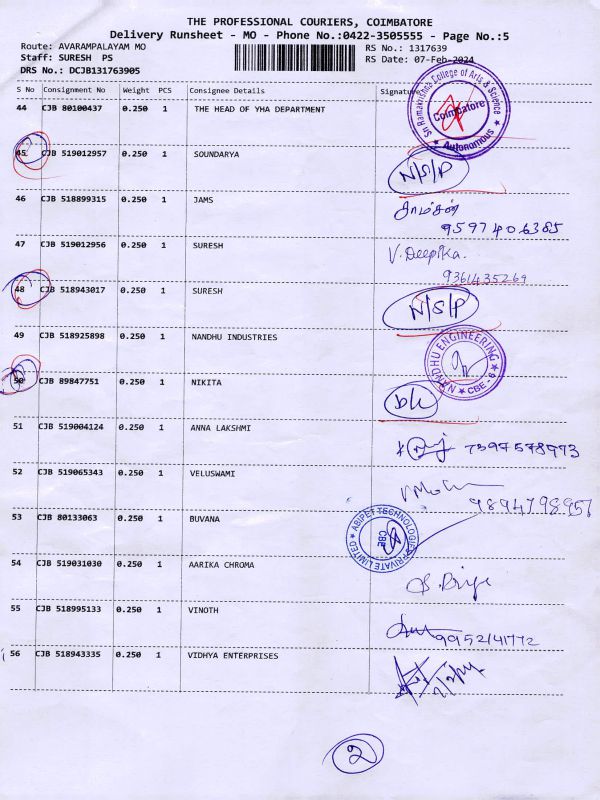 THE PROFESSIONAL COURIERS, COIMBATORE
Delivery Runsheet - MO - Phone No.:0422-3505555 - Page No.:5
Route: AVARAMPALAYAM MO RS No.: 1317639
Staff: SURESH PS RS Date: 07-Feb-2024
DRS No.: DCJB131763905
S No Consignment No Weight PCS Consignee Details Signature
44 CJB 80100437 0.250 1 THE HEAD OF YHA DEPARTMENT
Sri Ramakrishna College of Arts & Science
Coimbatore
★ Autonomous ★
45 CJB 519012957 0.250 1 SOUNDARYA N/S/P
46 CJB 518899315 1 0.250 1 JAMS சாம்சன்
9597406365
47 CJB 519012956 0.250 1 SURESH V. Deepika.
9361435269
48 CJB 518943017 0.250 1 SURESH N/S/P
49 CJB 518925898 0.250 1 NANDHU INDUSTRIES
NANDHU ENGINEERING
★ CBE - 9 ★
50 CJB 89847751 0.250 1 NIKITA D/L
51 CJB 519004124 0.250 1 ANNA LAKSHMI 7397578773
52 CJB 519065343 0.250 1 VELUSWAMI
9894798957
53 CJB 80133063 0.250 1 BUVANA
ABIPET TECHNOLOGIES PRIVATE LIMITED ★
CBE
54 CJB 519031030 0.250 1 AARIKA CHROMA S. Priya
55 CJB 518995133 0.250 1 VINOTH
9952141772
56 CJB 518943335 0.250 1 VIDHYA ENTERPRISES
2